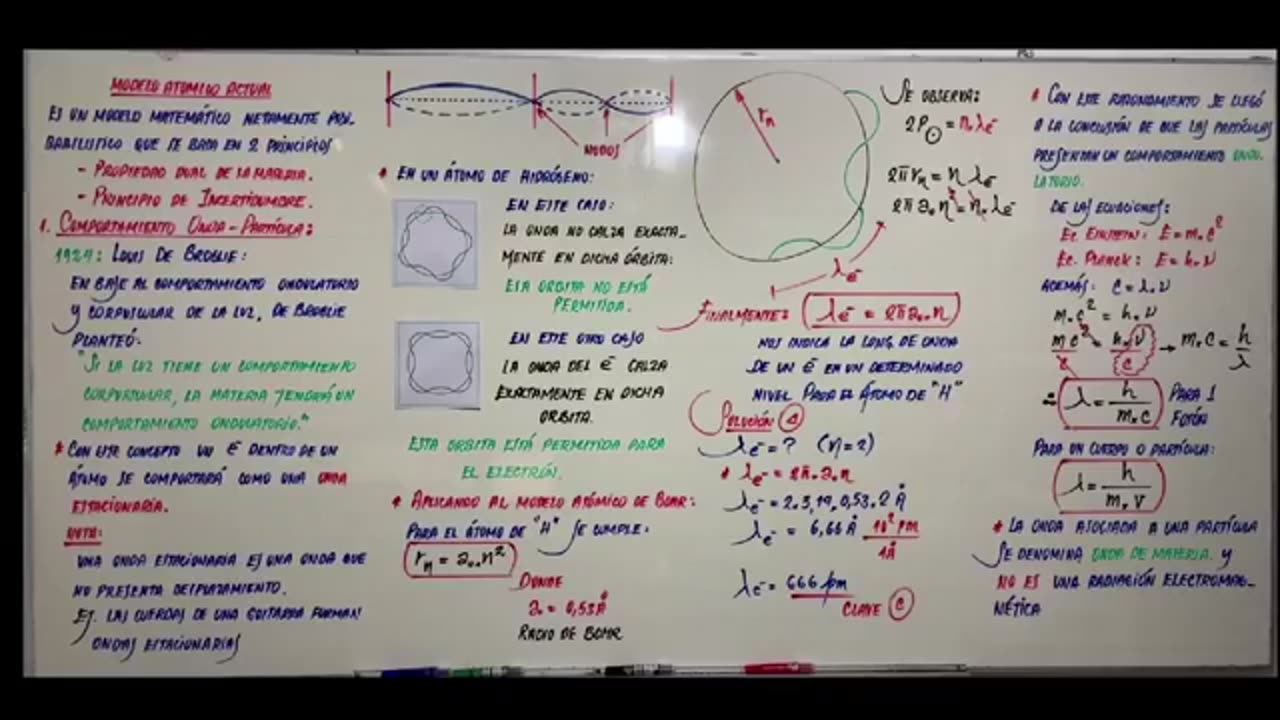 MODELO ATOMICO ACTUAL
ES UN MODELO MATEMÁTICO NETAMENTE PRO-
BABILISTICO QUE SE BASA EN 2 PRINCIPIOS
- PROPIEDAD DUAL DE LA MATERIA.
- PRINCIPIO DE INCERTIDUMBRE.
1. COMPORTAMIENTO ONDA-PARTÍCULA:
1924: LOUIS DE BROGLIE:
EN BASE AL COMPORTAMIENTO ONDULATORIO
Y CORPUSCULAR DE LA LUZ, DE BROGLIE
PLANTEÓ:
"SI LA LUZ TIENE UN COMPORTAMIENTO
CORPUSCULAR, LA MATERIA TENDRÁ UN
COMPORTAMIENTO ONDULATORIO."
* CON ESTE CONCEPTO UN e⁻ DENTRO DE UN
ÁTOMO SE COMPORTARÁ COMO UNA ONDA
ESTACIONARIA.
NOTA:
UNA ONDA ESTACIONARIA ES UNA ONDA QUE
NO PRESENTA DESPLAZAMIENTO.
EJ. LAS CUERDAS DE UNA GUITARRA FORMAN
ONDAS ESTACIONARIAS
NODOS
* EN UN ÁTOMO DE HIDRÓGENO:
EN ESTE CASO:
LA ONDA NO CALZA EXACTA-
MENTE EN DICHA ÓRBITA:
ESA ORBITA NO ESTÁ
PERMITIDA.
EN ESTE OTRO CASO
LA ONDA DEL e⁻ CALZA
EXACTAMENTE EN DICHA
ORBITA.
ESTA ORBITA ESTÁ PERMITIDA PARA
EL ELECTRÓN.
* APLICANDO AL MODELO ATÓMICO DE BOHR:
PARA EL ÁTOMO DE "H" SE CUMPLE:
rₙ = a₀.n²
DONDE
a₀ = 0,53Å
RADIO DE BOHR
rₙ
SE OBSERVA:
2P⊙ = n.λe⁻
2πrₙ = n λe⁻
2π a₀ n² = n.λe⁻
λe⁻
FINALMENTE: λe⁻ = 2πa₀.n
NOS INDICA LA LONG. DE ONDA
DE UN e⁻ EN UN DETERMINADO
NIVEL PARA EL ÁTOMO DE "H"
SOLUCIÓN 4
λe⁻ = ? (n=2)
* λe⁻ = 2π.a₀.n
λe⁻ = 2.3,14.0,53.2 Å
λe⁻ = 6,66 Å 10² pm / 1Å
λe⁻ = 666 pm
CLAVE C
* CON ESTE RAZONAMIENTO SE LLEGÓ
A LA CONCLUSIÓN DE QUE LAS PARTÍCULAS
PRESENTAN UN COMPORTAMIENTO ONDU-
LATORIO.
DE LAS ECUACIONES:
EC. EINSTEIN: E = m.c²
EC. PLANCK: E = h.ν
ADEMÁS: c = λ.ν
m.c² = h.ν
mc²/c = h.ν/c → m.c = h/λ
∴ λ = h/m.c PARA 1
FOTÓN
PARA UN CUERPO O PARTÍCULA:
λ = h/m.v
* LA ONDA ASOCIADA A UNA PARTÍCULA
SE DENOMINA ONDA DE MATERIA. Y
NO ES UNA RADIACIÓN ELECTROMAG-
NÉTICA